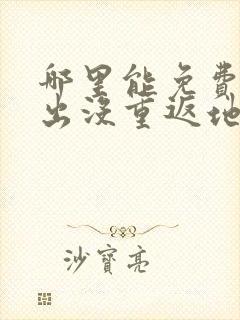 那里能免费
出没重返地
沙宝亮